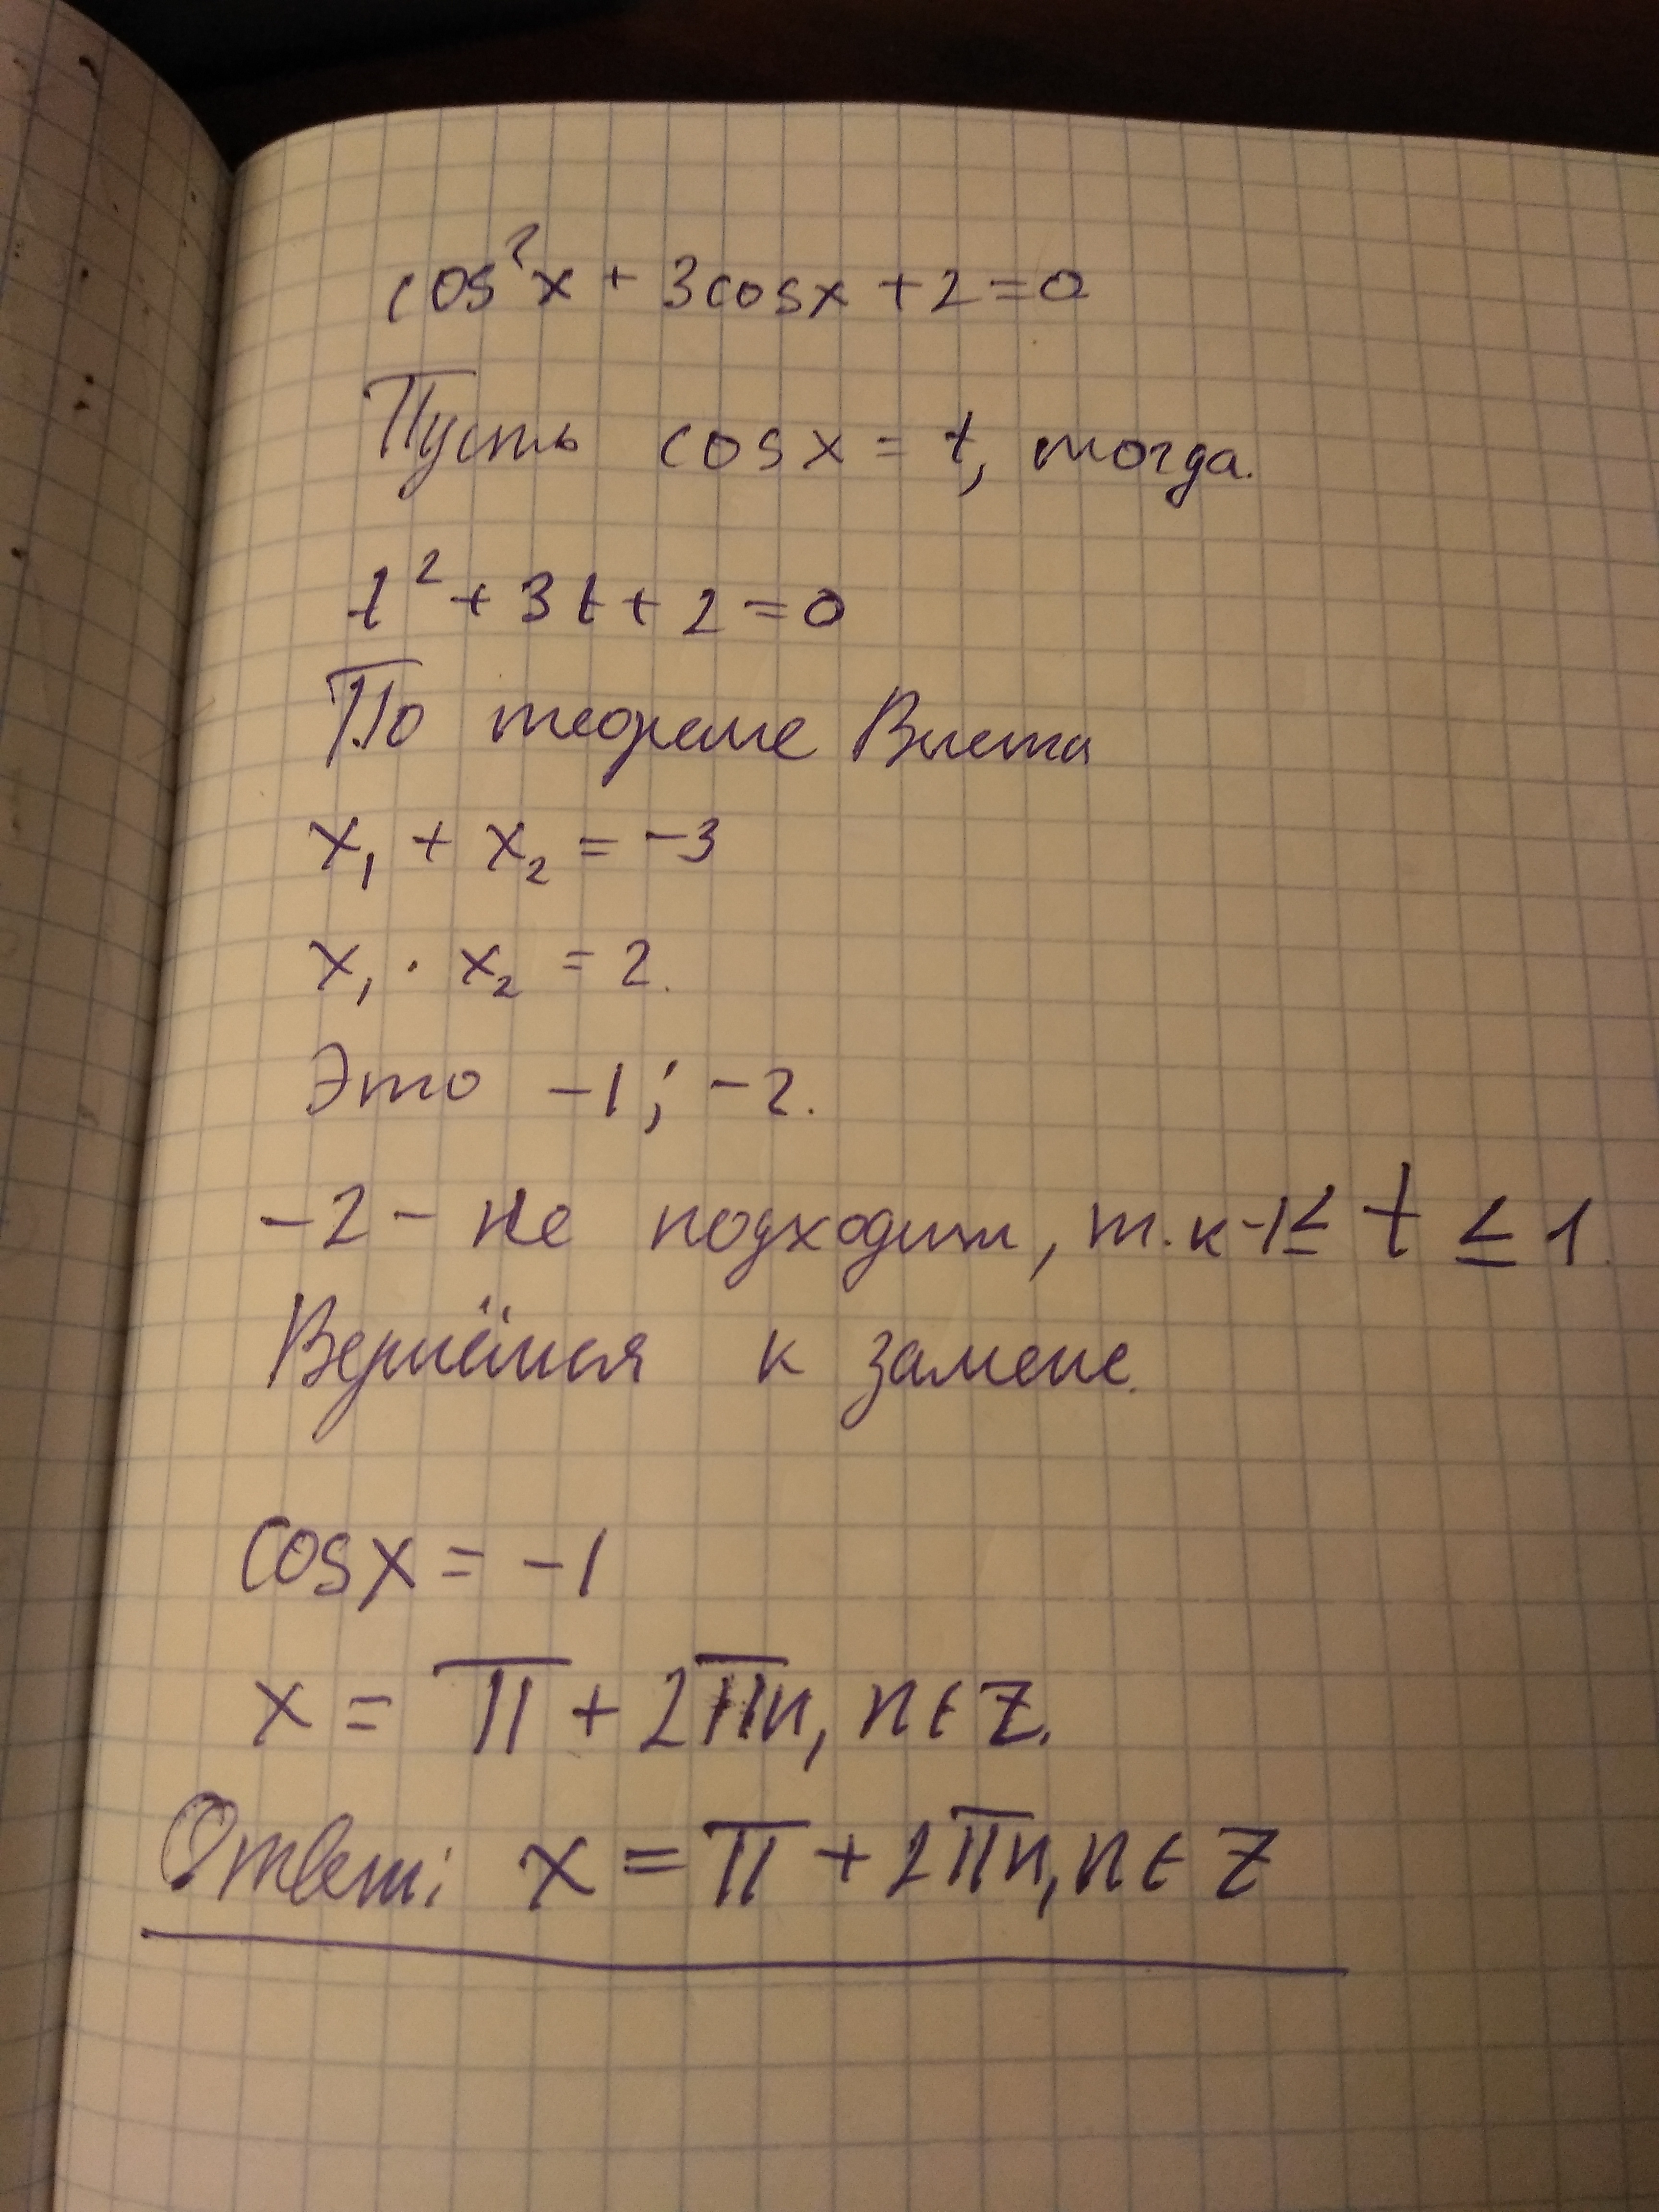 cos²x + 3cosx + 2 = 0
Пусть cosx = t, тогда.
t² + 3t + 2 = 0
По теореме Виета
x₁ + x₂ = -3
x₁ · x₂ = 2.
Это -1; -2.
-2 - не подходит, т.к -1 ≤ t ≤ 1.
Вернёмся к замене.
cosx = -1
x = π + 2πn, n ∈ Z.
Ответ: x = π + 2πn, n ∈ Z